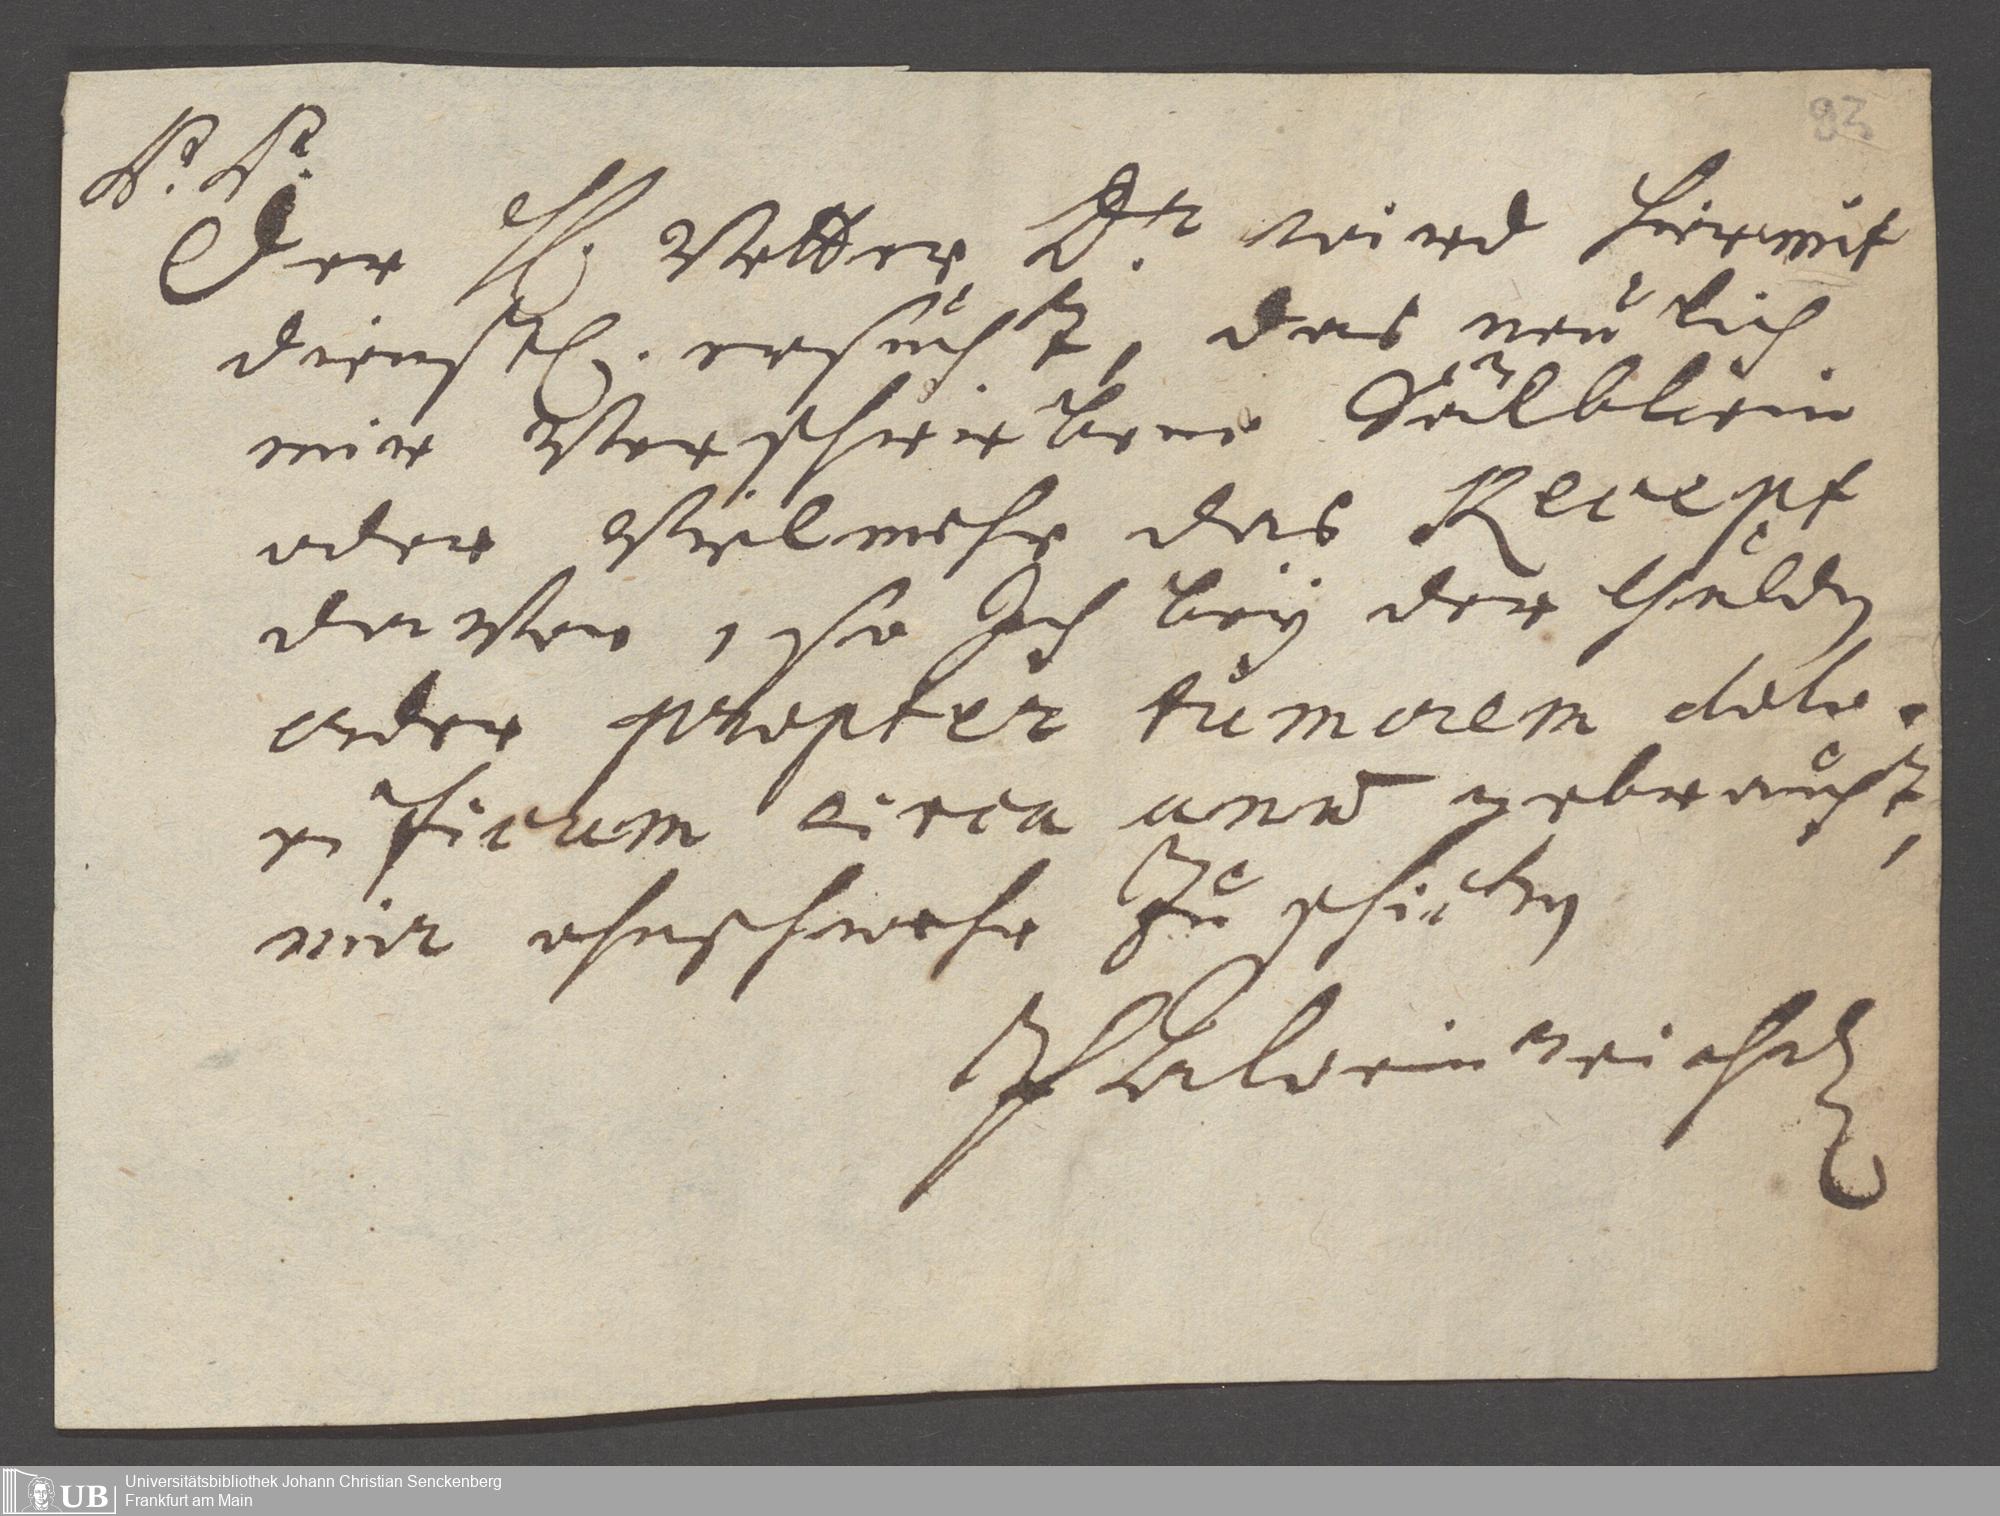 P. P.
83
Der H. Vetter Dr. wird hiermit
dienstl. ersucht, das neulich
mir verschriebene Sälblein
oder vielmehr das Recept
darvon, so Ich bey der
oder propter tumorem dolo-
rificum circa anum gebraucht,
mir ohnschwehr zu schicken
UB
Universitätsbibliothek Johann Christian Senckenberg
Frankfurt am Main